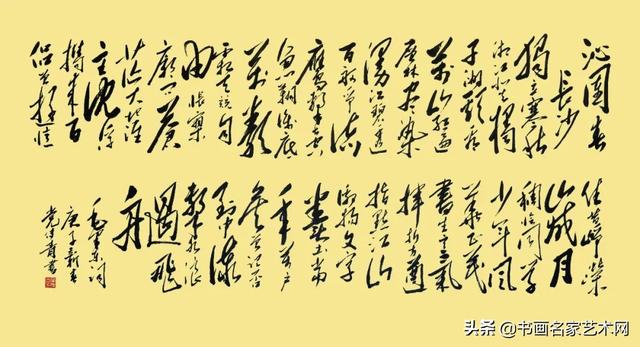 沁园春
长沙
独立寒秋
湘江北去橘
子洲头看
万山红遍
层林尽染
漫江碧透
百舸争流
鹰击长空
鱼翔浅底
万类
霜天竞自
由怅寥
廓问苍
茫大地谁
主沉浮
携来百
侣曾游忆
往昔峥嵘
岁月
稠恰同学
少年风
华正茂
书生意气
挥斥方遒
指点江山
激扬文字
粪土当
年万户
侯曾记否
到中流
击水浪
遏飞
舟
毛泽东词
庚子新春
头条 @书画名家艺术网